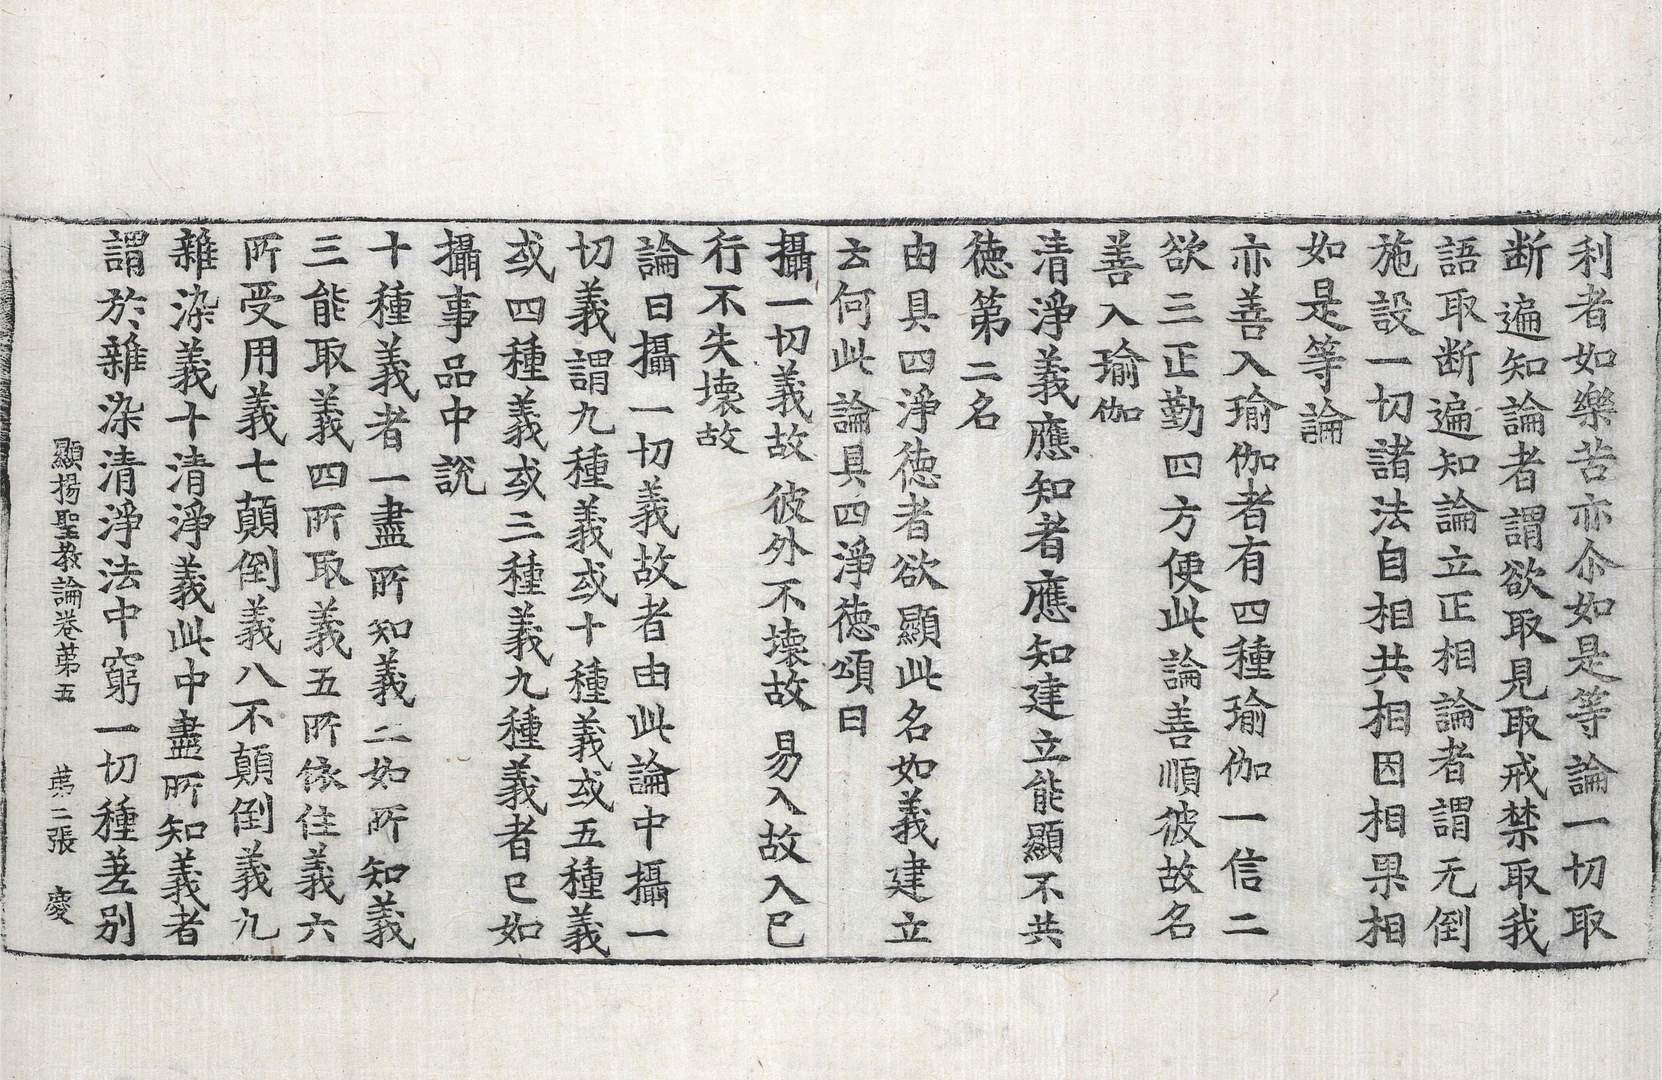 利者如樂苦亦尒如是等論一切取
断遍知論者謂欲取見取戒禁取我
語取断遍知論立正相論者謂无倒
施設一切諸法自相共相因相果相
如是等論
亦善入瑜伽者有四種瑜伽一信二
欲三正勤四方便此論善順彼故名
善入瑜伽
清淨義應知者應知建立能顯不共
德第二名
由具四淨德者欲顯此名如義建立
云何此論具四淨德頌曰
攝一切義故 彼外不壞故 易入故入已
行不失壞故
論曰攝一切義故者由此論中攝一
切義謂九種義或十種義或五種義
或四種義或三種義九種義者已如
攝事品中說
十種義者一盡所知義二如所知義
三能取義四所取義五所依住義六
所受用義七顛倒義八不顛倒義九
雜染義十清淨義此中盡所知義者
謂於雜染清淨法中窮一切種差別
顯揚聖教論卷第五 第二張 慶